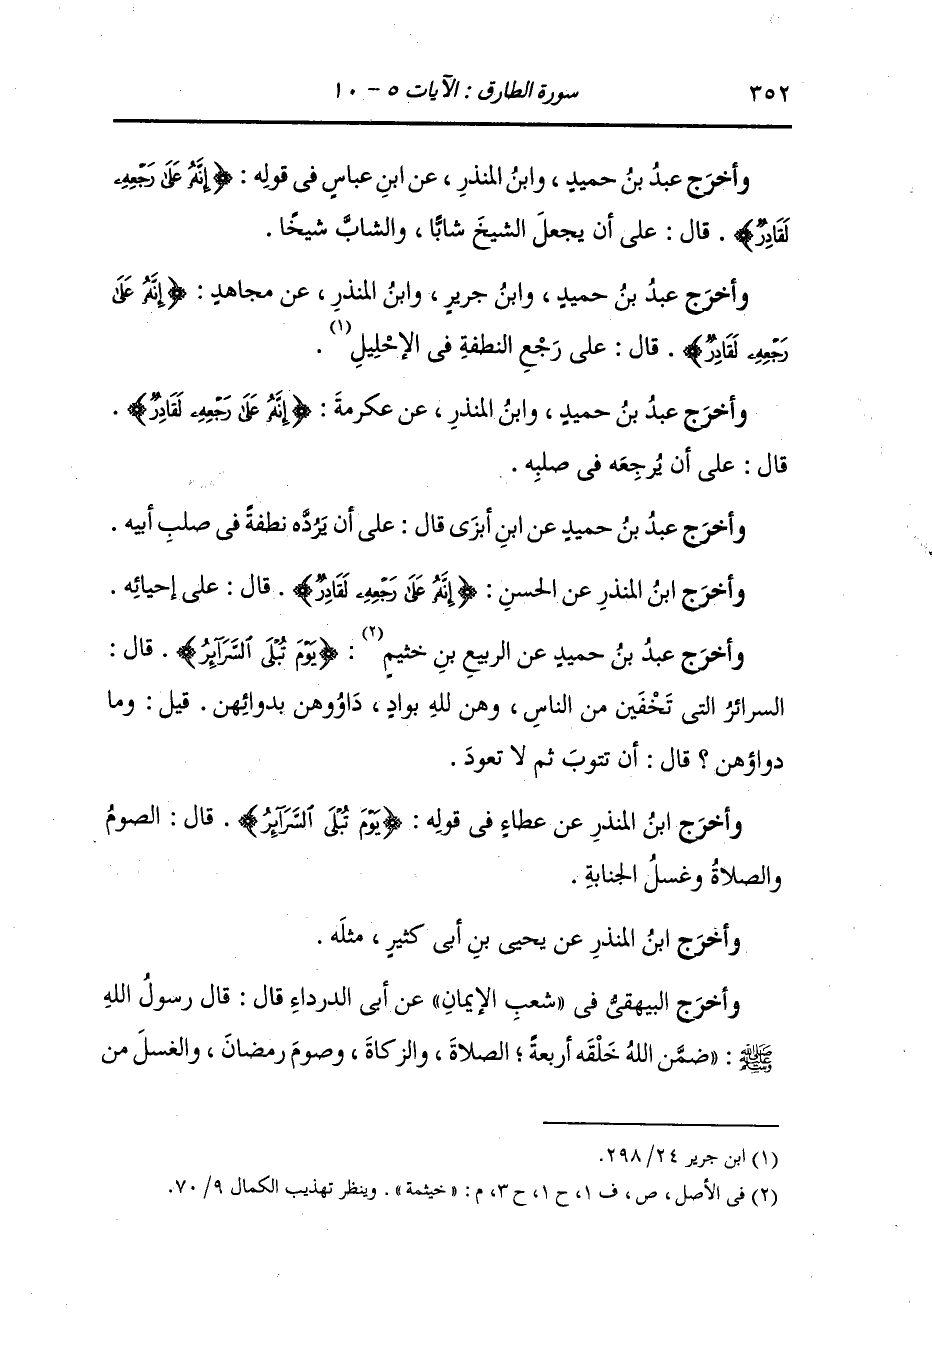 ٣٥٢ سورة الطارق : الآيات ٥ - ١٠
وأخرَج عبدُ بنُ حميدٍ ، وابنُ المنذرِ ، عن ابنِ عباسٍ فى قولِه : ﴿إِنَّهُۥ عَلَىٰ رَجْعِهِۦ
لَقَادِرٌ﴾ . قال : على أن يجعلَ الشيخَ شابًّا ، والشابَّ شيخًا .
وأخرَج عبدُ بنُ حميدٍ ، وابنُ جريرٍ ، وابنُ المنذرِ ، عن مجاهدٍ : ﴿إِنَّهُۥ عَلَىٰ
رَجْعِهِۦ لَقَادِرٌ﴾ . قال : على رَجْعِ النطفةِ فى الإحْلِيلِ(١) .
وأخرَج عبدُ بنُ حميدٍ ، وابنُ المنذرِ ، عن عكرمةَ : ﴿إِنَّهُۥ عَلَىٰ رَجْعِهِۦ لَقَادِرٌ﴾ .
قال : على أن يُرجِعَه فى صلبِه .
وأخرَج عبدُ بنُ حميدٍ عن ابنِ أبزَى قال : على أن يَرُدَّه نطفةً فى صلبِ أبيه .
وأخرَج ابنُ المنذرِ عن الحسنِ : ﴿إِنَّهُۥ عَلَىٰ رَجْعِهِۦ لَقَادِرٌ﴾ . قال : على إحيائِه .
وأخرَج عبدُ بنُ حميدٍ عن الربيعِ بنِ خثيمٍ(٢) : ﴿يَوْمَ تُبْلَى ٱلسَّرَآئِرُ﴾ . قال :
السرائرُ التى تَخْفَين من الناسِ ، وهن للهِ بوادٍ ، دَاوُوهن بدوائِهن . قيل : وما
دواؤهن ؟ قال : أن تتوبَ ثم لا تعودَ .
وأخرَج ابنُ المنذرِ عن عطاءٍ فى قولِه : ﴿يَوْمَ تُبْلَى ٱلسَّرَآئِرُ﴾ . قال : الصومُ
والصلاةُ وغسلُ الجنابةِ .
وأخرَج ابنُ المنذرِ عن يحيى بنِ أبى كثيرٍ ، مثلَه .
وأخرَج البيهقىُّ فى «شعبِ الإيمانِ» عن أبى الدرداءِ قال : قال رسولُ اللهِ
ﷺ : «ضمَّن اللهُ خَلْقَه أربعةً ؛ الصلاةَ ، والزكاةَ ، وصومَ رمضانَ ، والغسلَ من
(١) ابن جرير ٢٤/ ٢٩٨.
(٢) فى الأصل ، ص ، ف ١، ح ١، ح ٣، م : «خيثمة» . وينظر تهذيب الكمال ٩/ ٧٠.